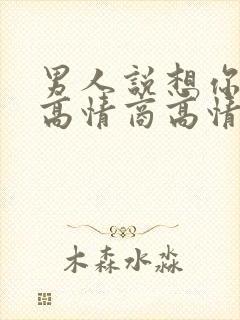 男人說想你
高情商高情
木森水淼